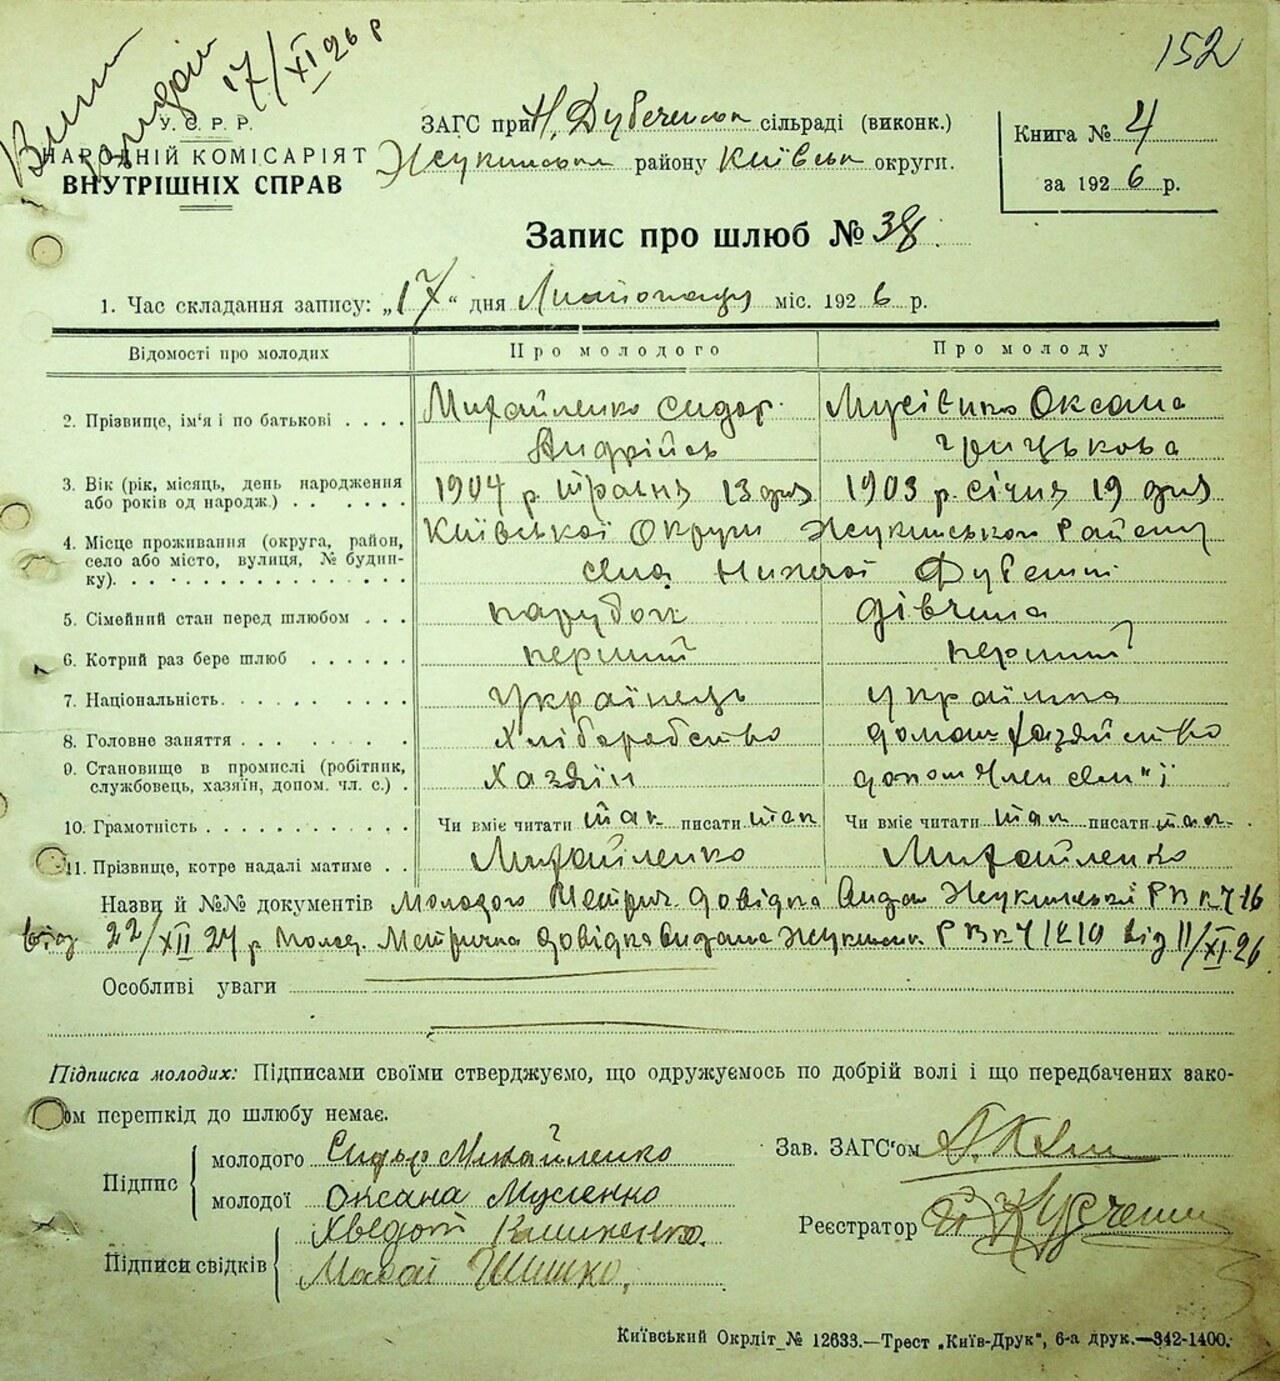 152
17/XI 26 р
У. С. Р. Р.
НАРОДНІЙ КОМІСАРІЯТ
ВНУТРІШНІХ СПРАВ
ЗАГС при Н, Дубечанськ сільраді (виконк.)
Жукинськом району Київськ округи.
Книга № 4
за 1926 р.
Запис про шлюб № 38.
1. Час складання запису: „17“ дня Листопаду міс. 1926 р.
Відомості про молодих Про молодого Про молоду
2. Прізвище, ім'я і по батькові . . . . Михайленко Сидор Мусієнко Оксана
Андрійов Грицькова
3. Вік (рік, місяць, день народження або років од народж.) . . . . . . 1904 р. травня 13 дня 1903 р. січня 19 дня
4. Місце проживання (округа, район, село або місто, вулиця, № будинку). . . . Київської Округи Жукинського Району
села Нижчої Дубечні
5. Сімейний стан перед шлюбом . . . парубок дівчина
6. Котрий раз бере шлюб . . . . . . перший перший
7. Національність. . . . . . . . українець українка
8. Головне заняття . . . . . . . . Хліборобство домаш хазяйство
9. Становище в промислі (робітник, службовець, хазяїн, допом. чл. с.) . хазяїн допом член сем"ї
10. Грамотність . . . . . . . . . . . . Чи вміє читати так писати так Чи вміє читати так писати так
11. Прізвище, котре надалі матиме . . Михайленко Михайленко
Назви й №№ документів Молодого Метрич. довідка видан Жукинській РВК
від 22/XII 27 р Молод. Метрична довідка видана Жукинськ. РВК від 11/XI 26
Особливі уваги
Підписка молодих: Підписами своїми стверджуємо, що одружуємось по добрій волі і що передбачених зако-
ом перешкід до шлюбу немає.
Підпис молодого Сидор Михайленко
молодої Оксана Мусіенко
Зав. ЗАГС'ом
Підписи свідків Хведот Клименко.
Шишко,
Реєстратор
Київський Окрліт № 12633.—Трест „Київ-Друк“, 6-а друк.—342-1400.